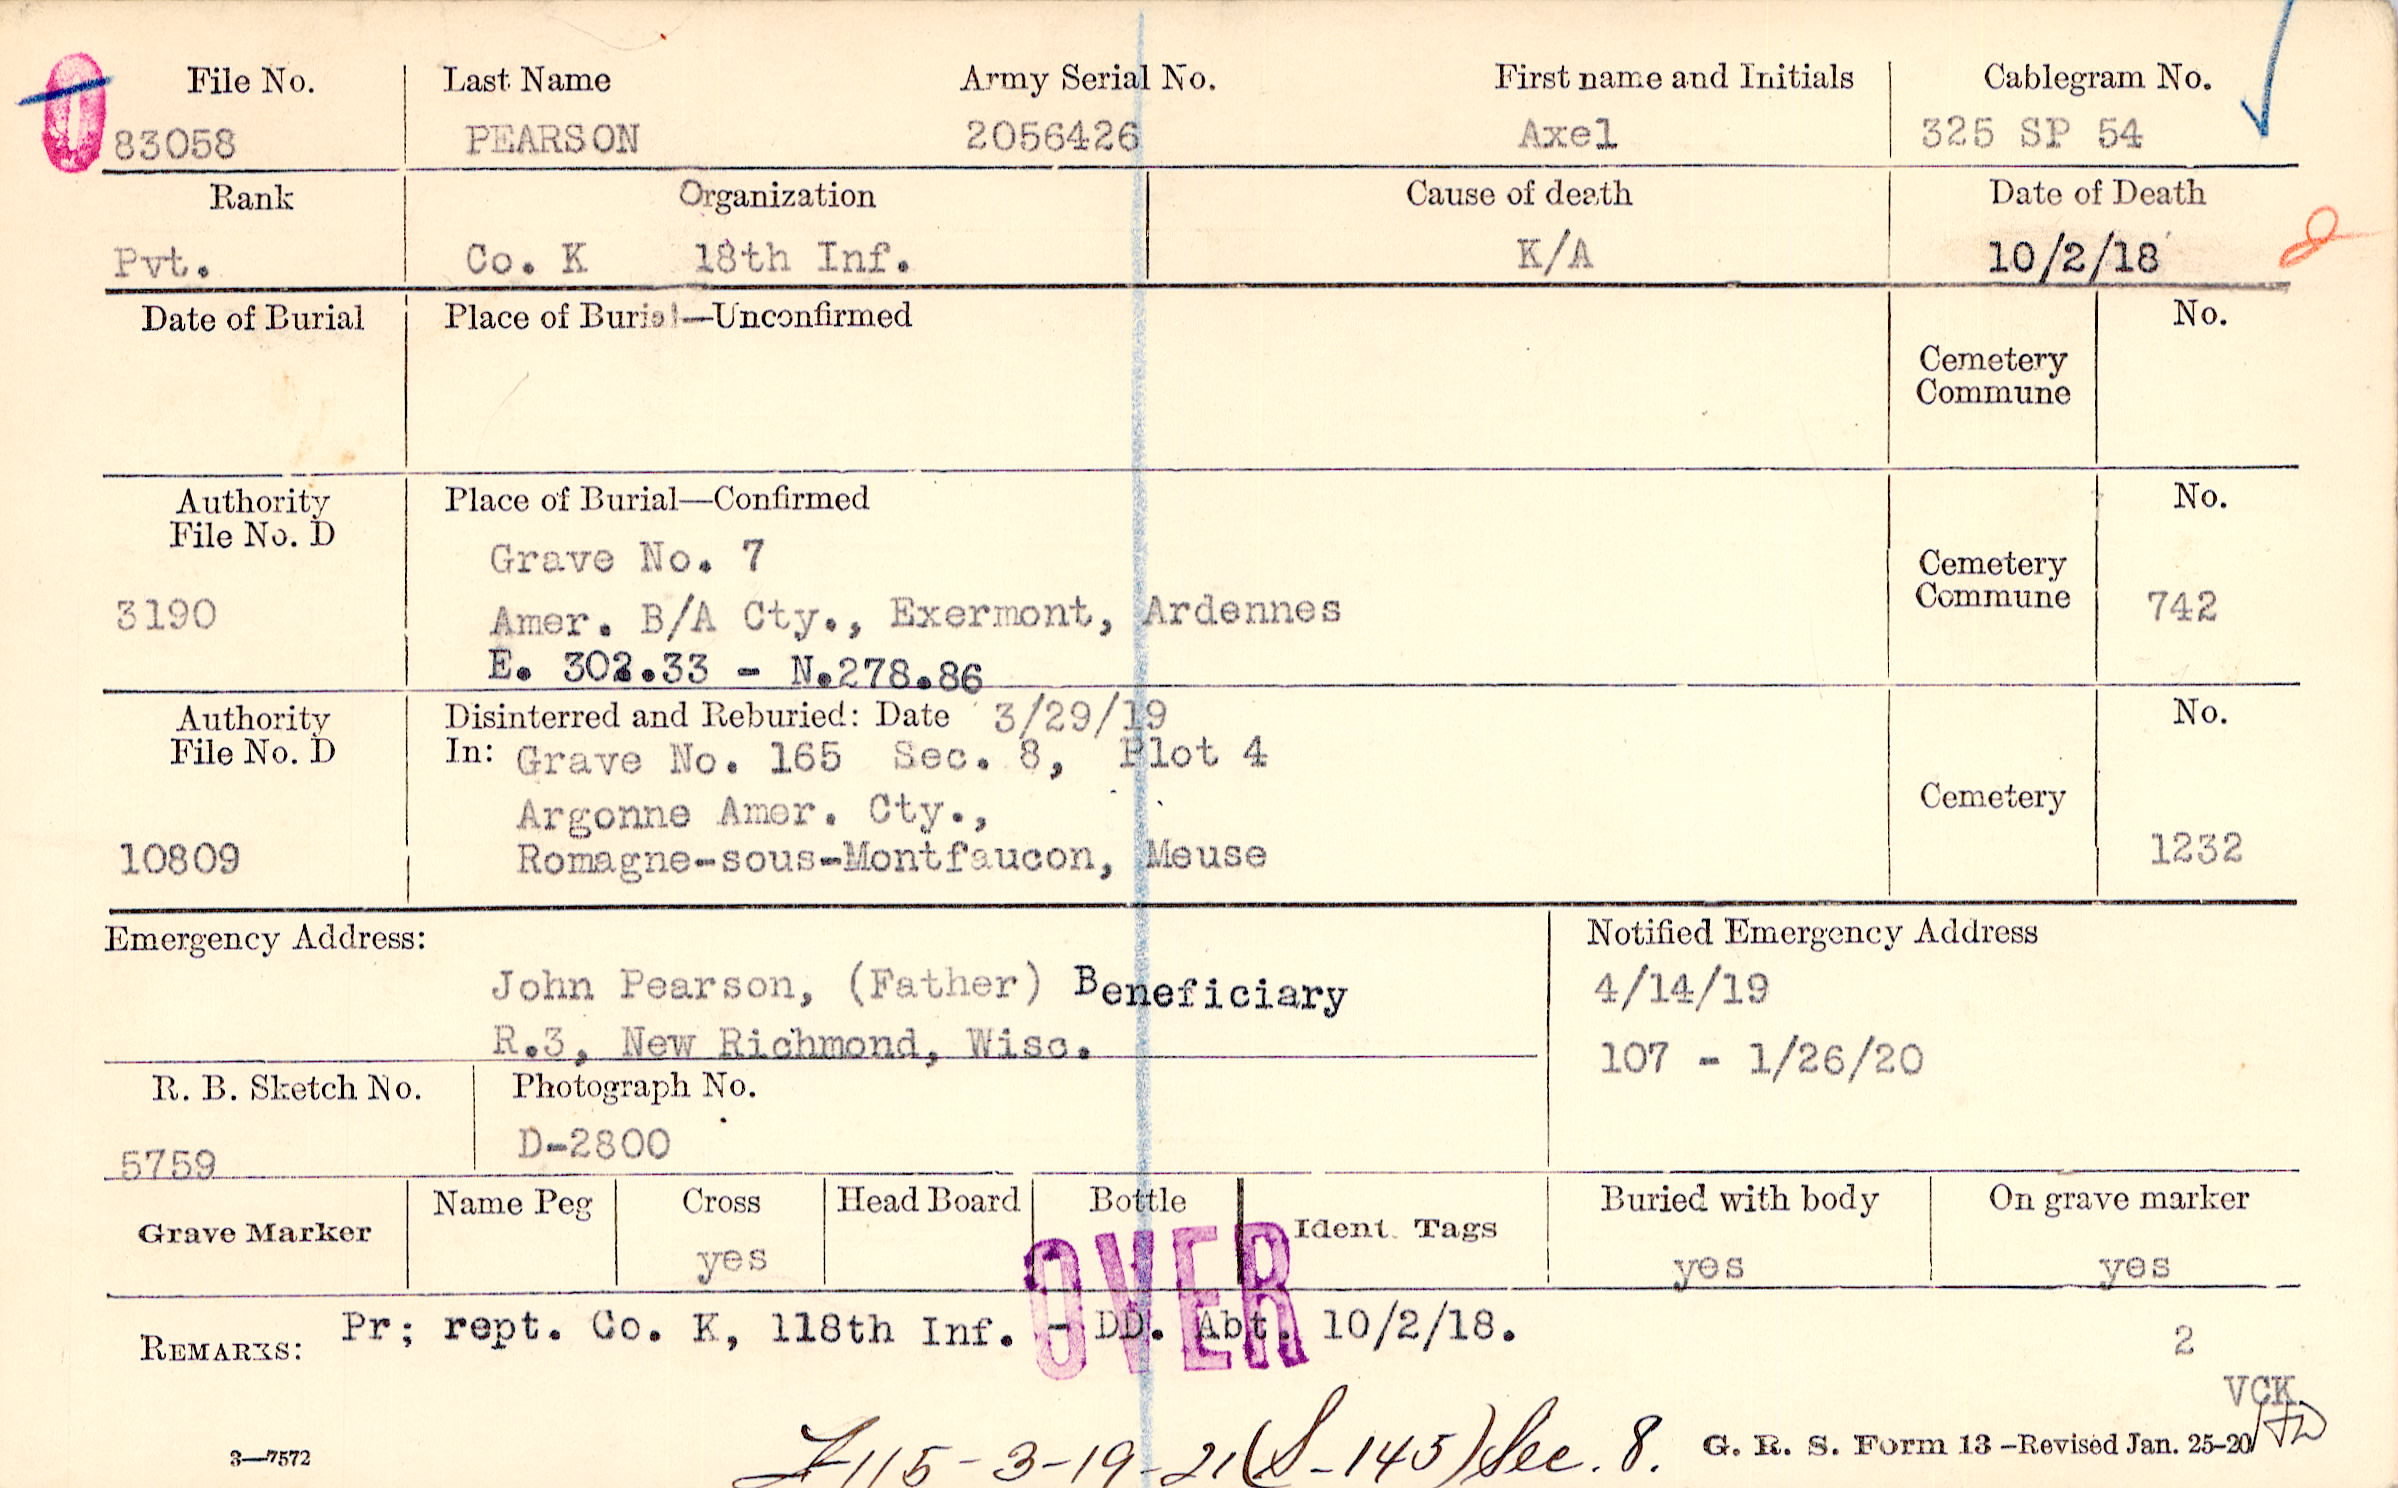 File No. Last Name Army Serial No. First name and Initials Cablegram No.
83058 PEARSON 2056426 Axel 325 SP 54
Rank Organization Cause of death Date of Death
Pvt. Co. K 18th Inf. K/A 10/2/18
Date of Burial Place of Burial—Unconfirmed No.
Cemetery
Commune
Authority Place of Burial—Confirmed No.
File No. D
Grave No. 7
Cemetery
3190 Amer. B/A Cty., Exermont, Ardennes Commune 742
E. 302.33 - N.278.86
Authority Disinterred and Reburied: Date 3/29/19 No.
File No. D In: Grave No. 165 Sec. 8, Plot 4
Argonne Amer. Cty., Cemetery
10809 Romagne-sous-Montfaucon, Meuse 1232
Emergency Address: Notified Emergency Address
John Pearson, (Father) Beneficiary 4/14/19
R.3, New Richmond, Wisc. 107 - 1/26/20
R. B. Sketch No. Photograph No.
5759 D-2800
Grave Marker Name Peg Cross Head Board Bottle Ident. Tags Buried with body On grave marker
yes yes yes
OVER
REMARKS: Pr; rept. Co. K, 118th Inf. - DD. Abt. 10/2/18.
2
VCK
3—7572 115-3-19-21(S-145) Sec. 8. G. R. S. Form 13—Revised Jan. 25-20